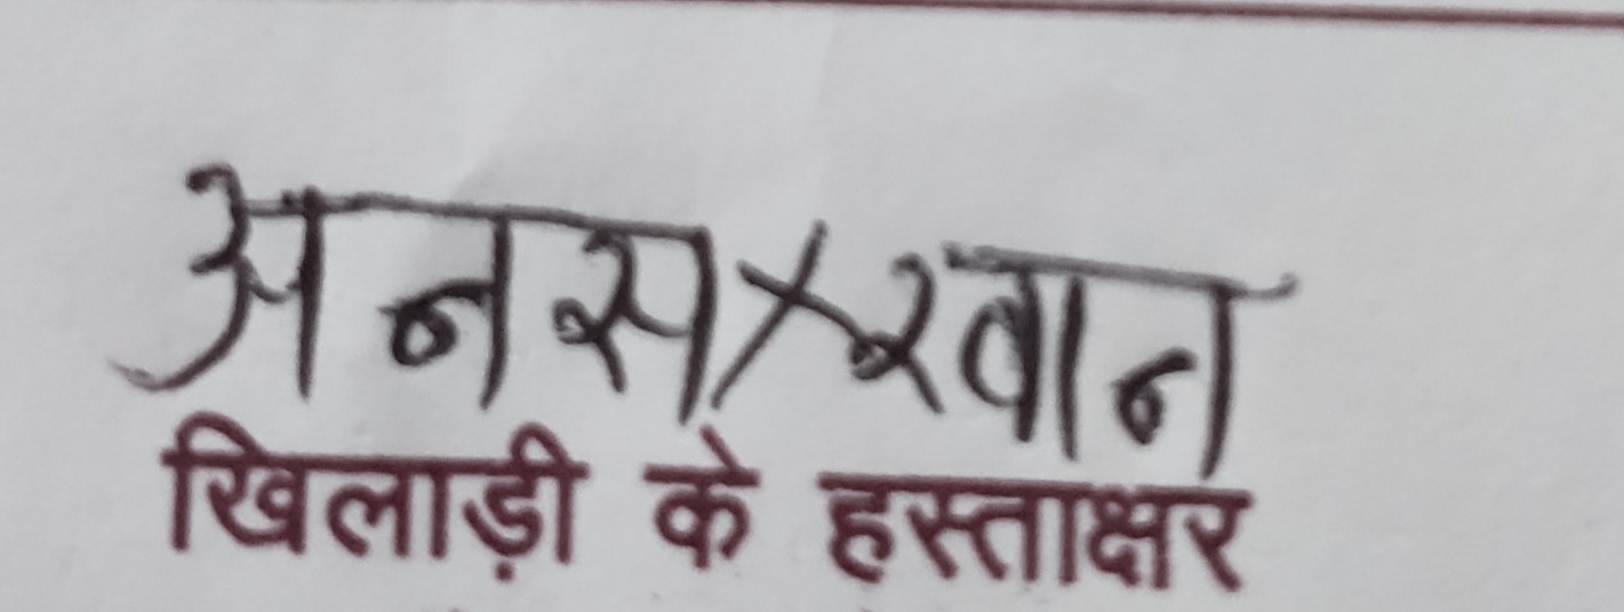 अनस खान
खिलाड़ी के हस्ताक्षर